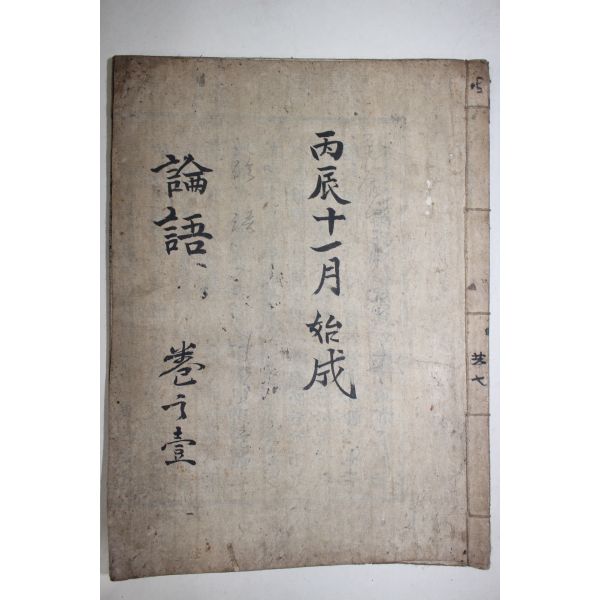 丙辰十一月始成
論語 卷之壹
共七